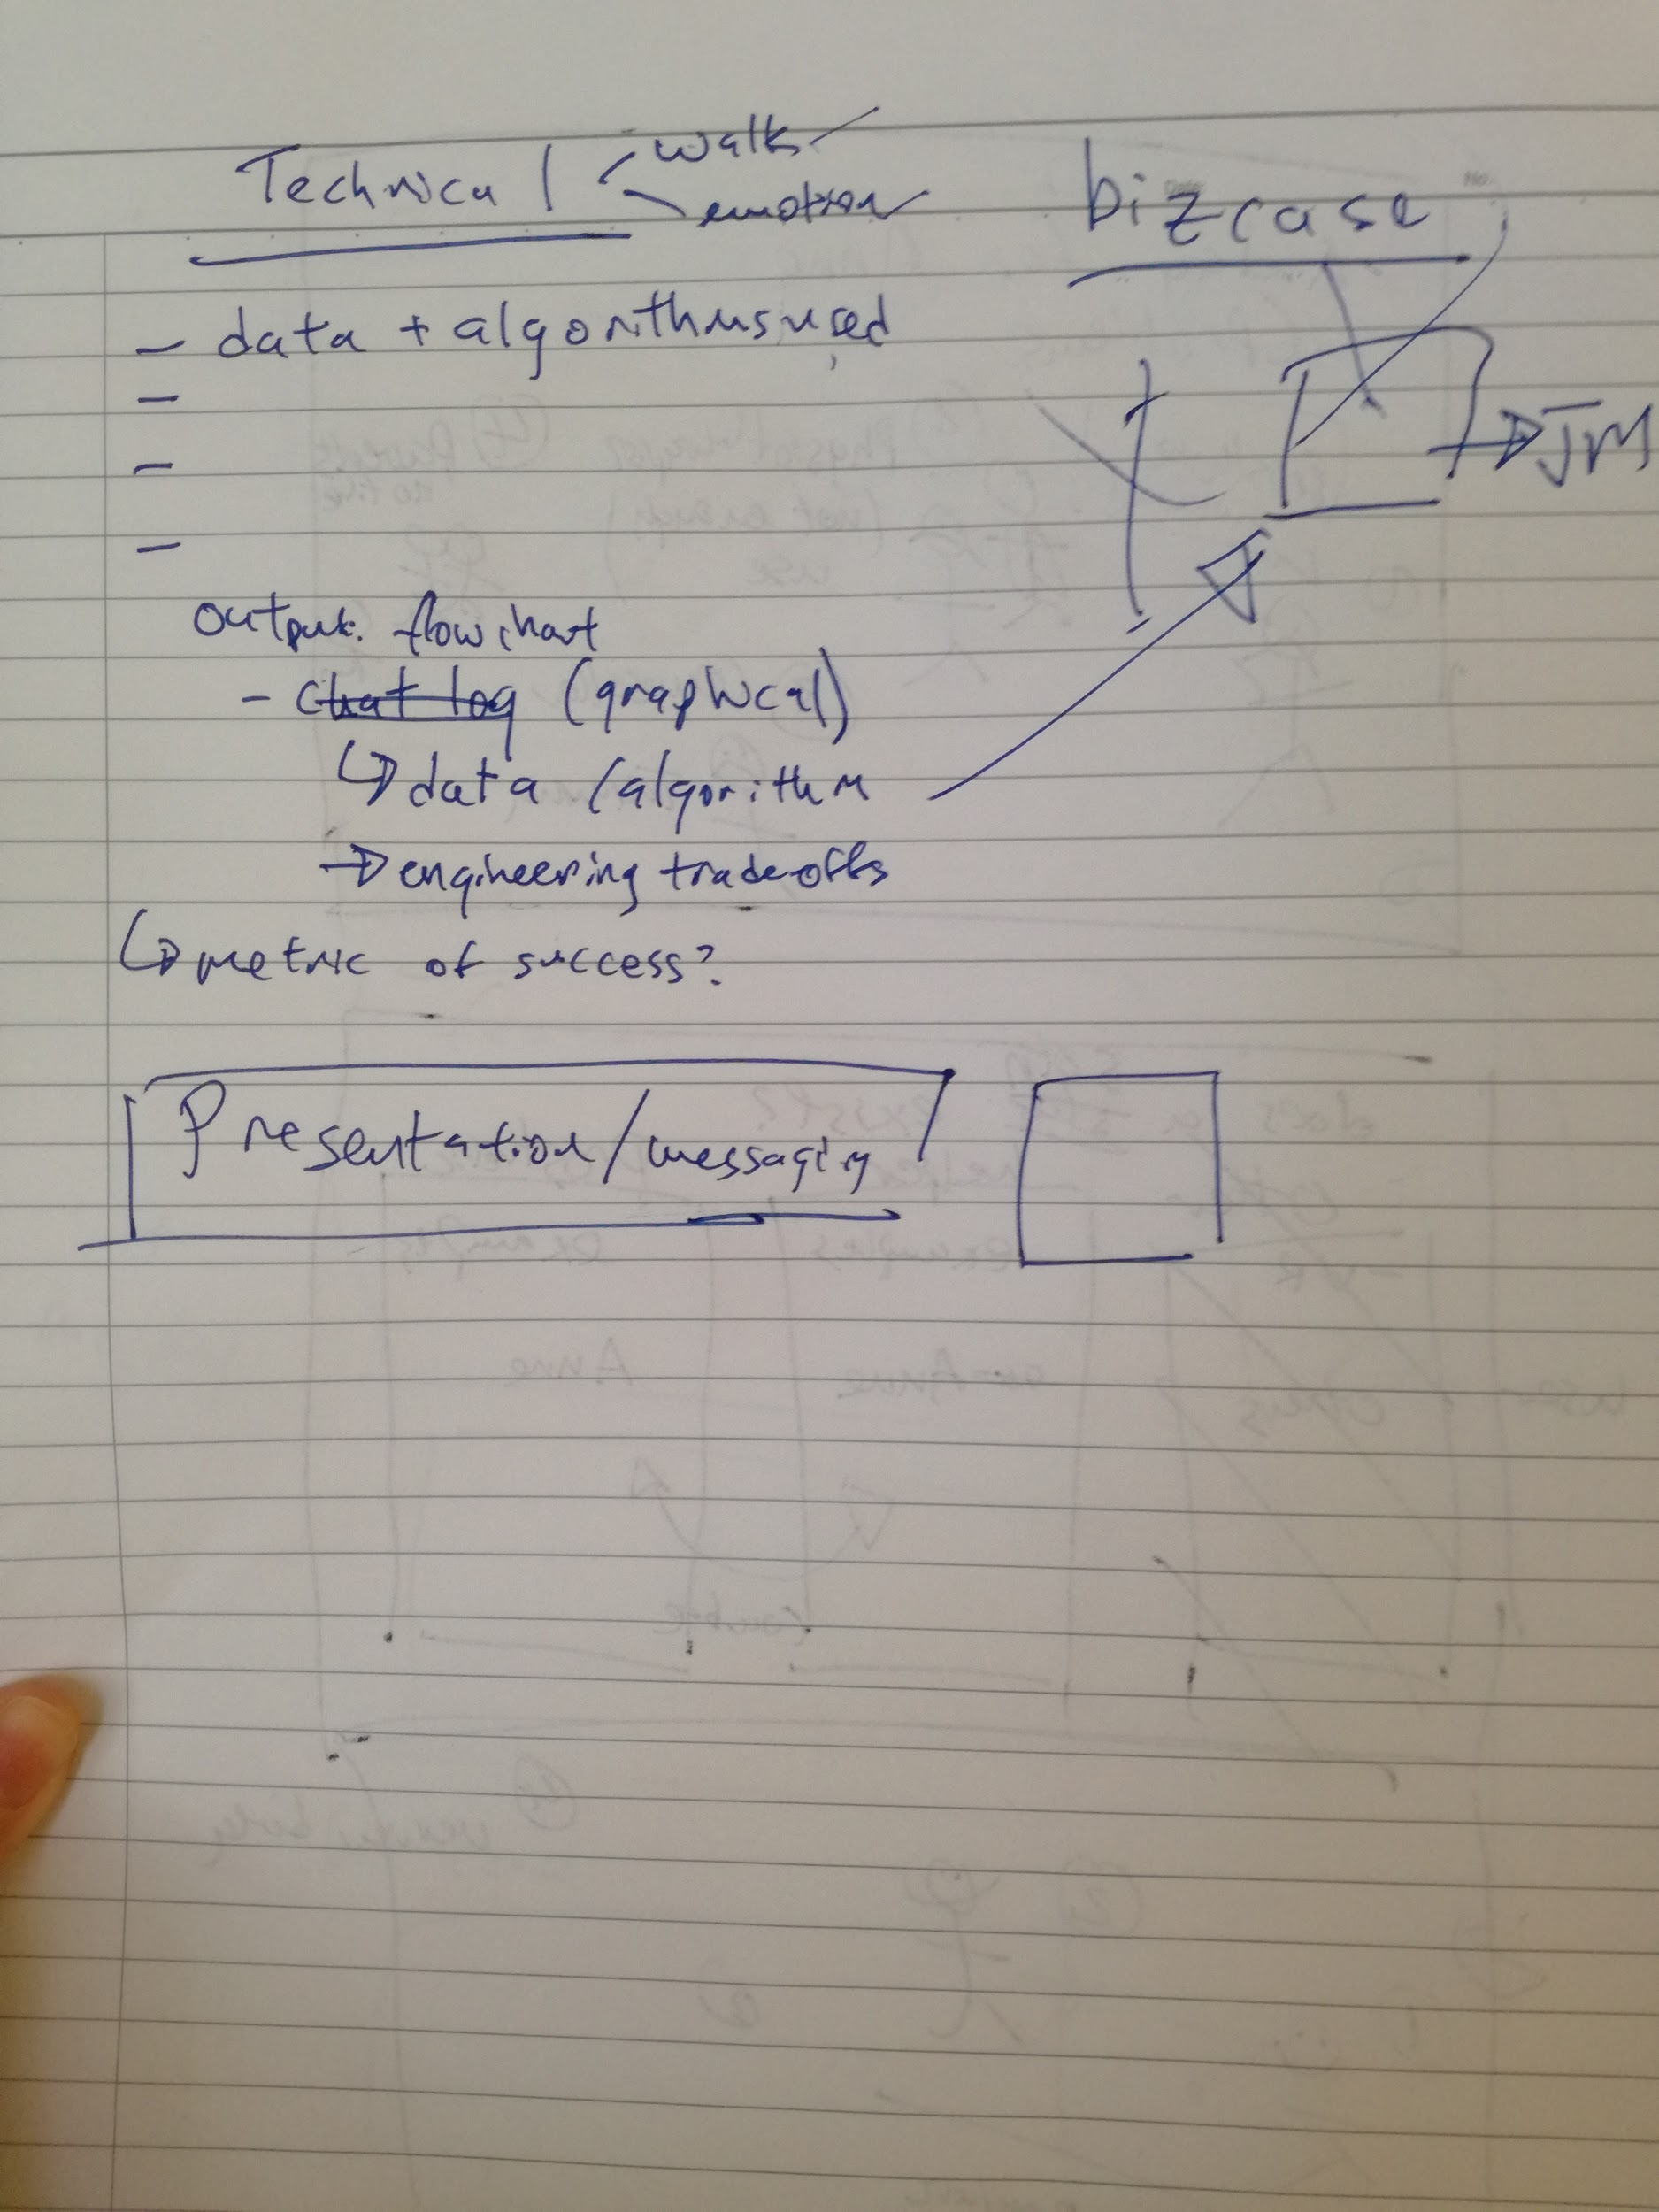 Technical
walk
emotion
bizcase
- data + algorithms used
-
-
-
JM
output: flowchart
- chat log (graphical)
data / algorithm
engineering tradeoffs
metric of success?
Presentation/messaging